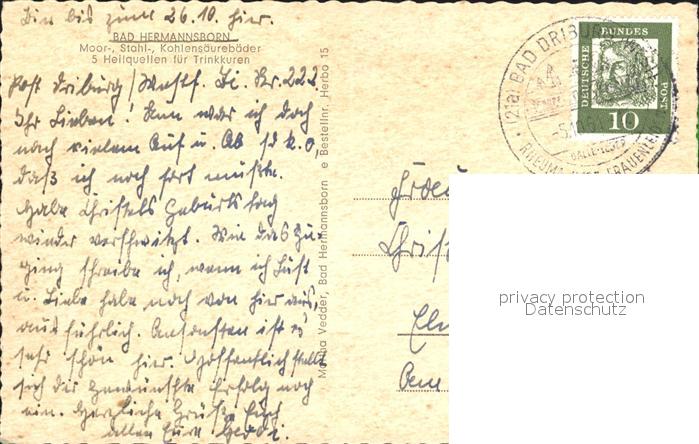 Bin bis zum 26.10. hier.
BAD HERMANNSBORN
Moor-, Stahl-, Kohlensäurebäder
5 Heilquellen für Trinkkuren
Post Driburg / Westf. Zi. Nr. 222
Ihr Lieben! Nun war ich doch
nach vielem Auf u. Ab so k.o.
daß ich noch fort mußte.
Habe Christels Geburtstag
wieder verschwitzt. Wie das zu-
ging schreibe ich, wenn ich Lust
u. Liebe habe noch von hier aus,
ausführlich. Ansonsten ist es
sehr schön hier. Hoffentlich stellt
sich der gewünschte Erfolg noch
ein. Herzliche Grüße Euch
allen Eure
Martha Vedder, Bad Hermannsborn e Bestellnr. Herbo 15
(21a) BAD DRIBURG
RHEUMA FRAUENLEIDEN
DEUTSCHE BUNDES POST
10
privacy protection
Datenschutz